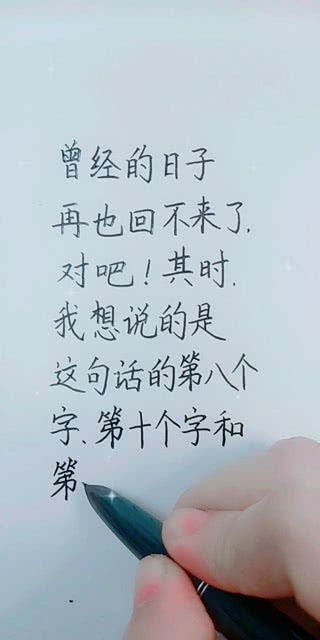 曾经的日子
再也回不来了,
对吧！其时,
我想说的是
这句话的第八个
字、第十个字和
第